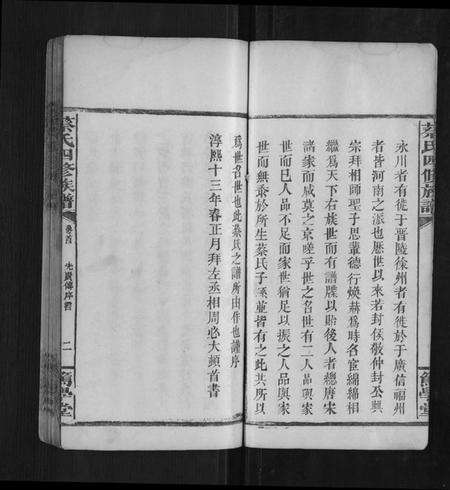 永川者有徙于晋陵徐州者有徙於廣信福州
者皆河南之派也歷世以來若封侯敬仲封公興
宗拜相師聖子思輩德行煥赫爲時名宦綿綿相
繼爲天下右族世而有譜牒以貽後人者總唐宋
諸家而咸莫之京嗟乎世之名世有二人品與家
世而已人品不足而家世猶足以振之人品與家
世而無忝於所生蔡氏子孫並皆有之此其所以
爲世名世也此蔡氏之譜所由作也謹序
淳熙十三年春正月拜左丞相周必大頓首書
蔡氏四修族譜
卷首
先賢傳序君
二
蔡氏四修族譜